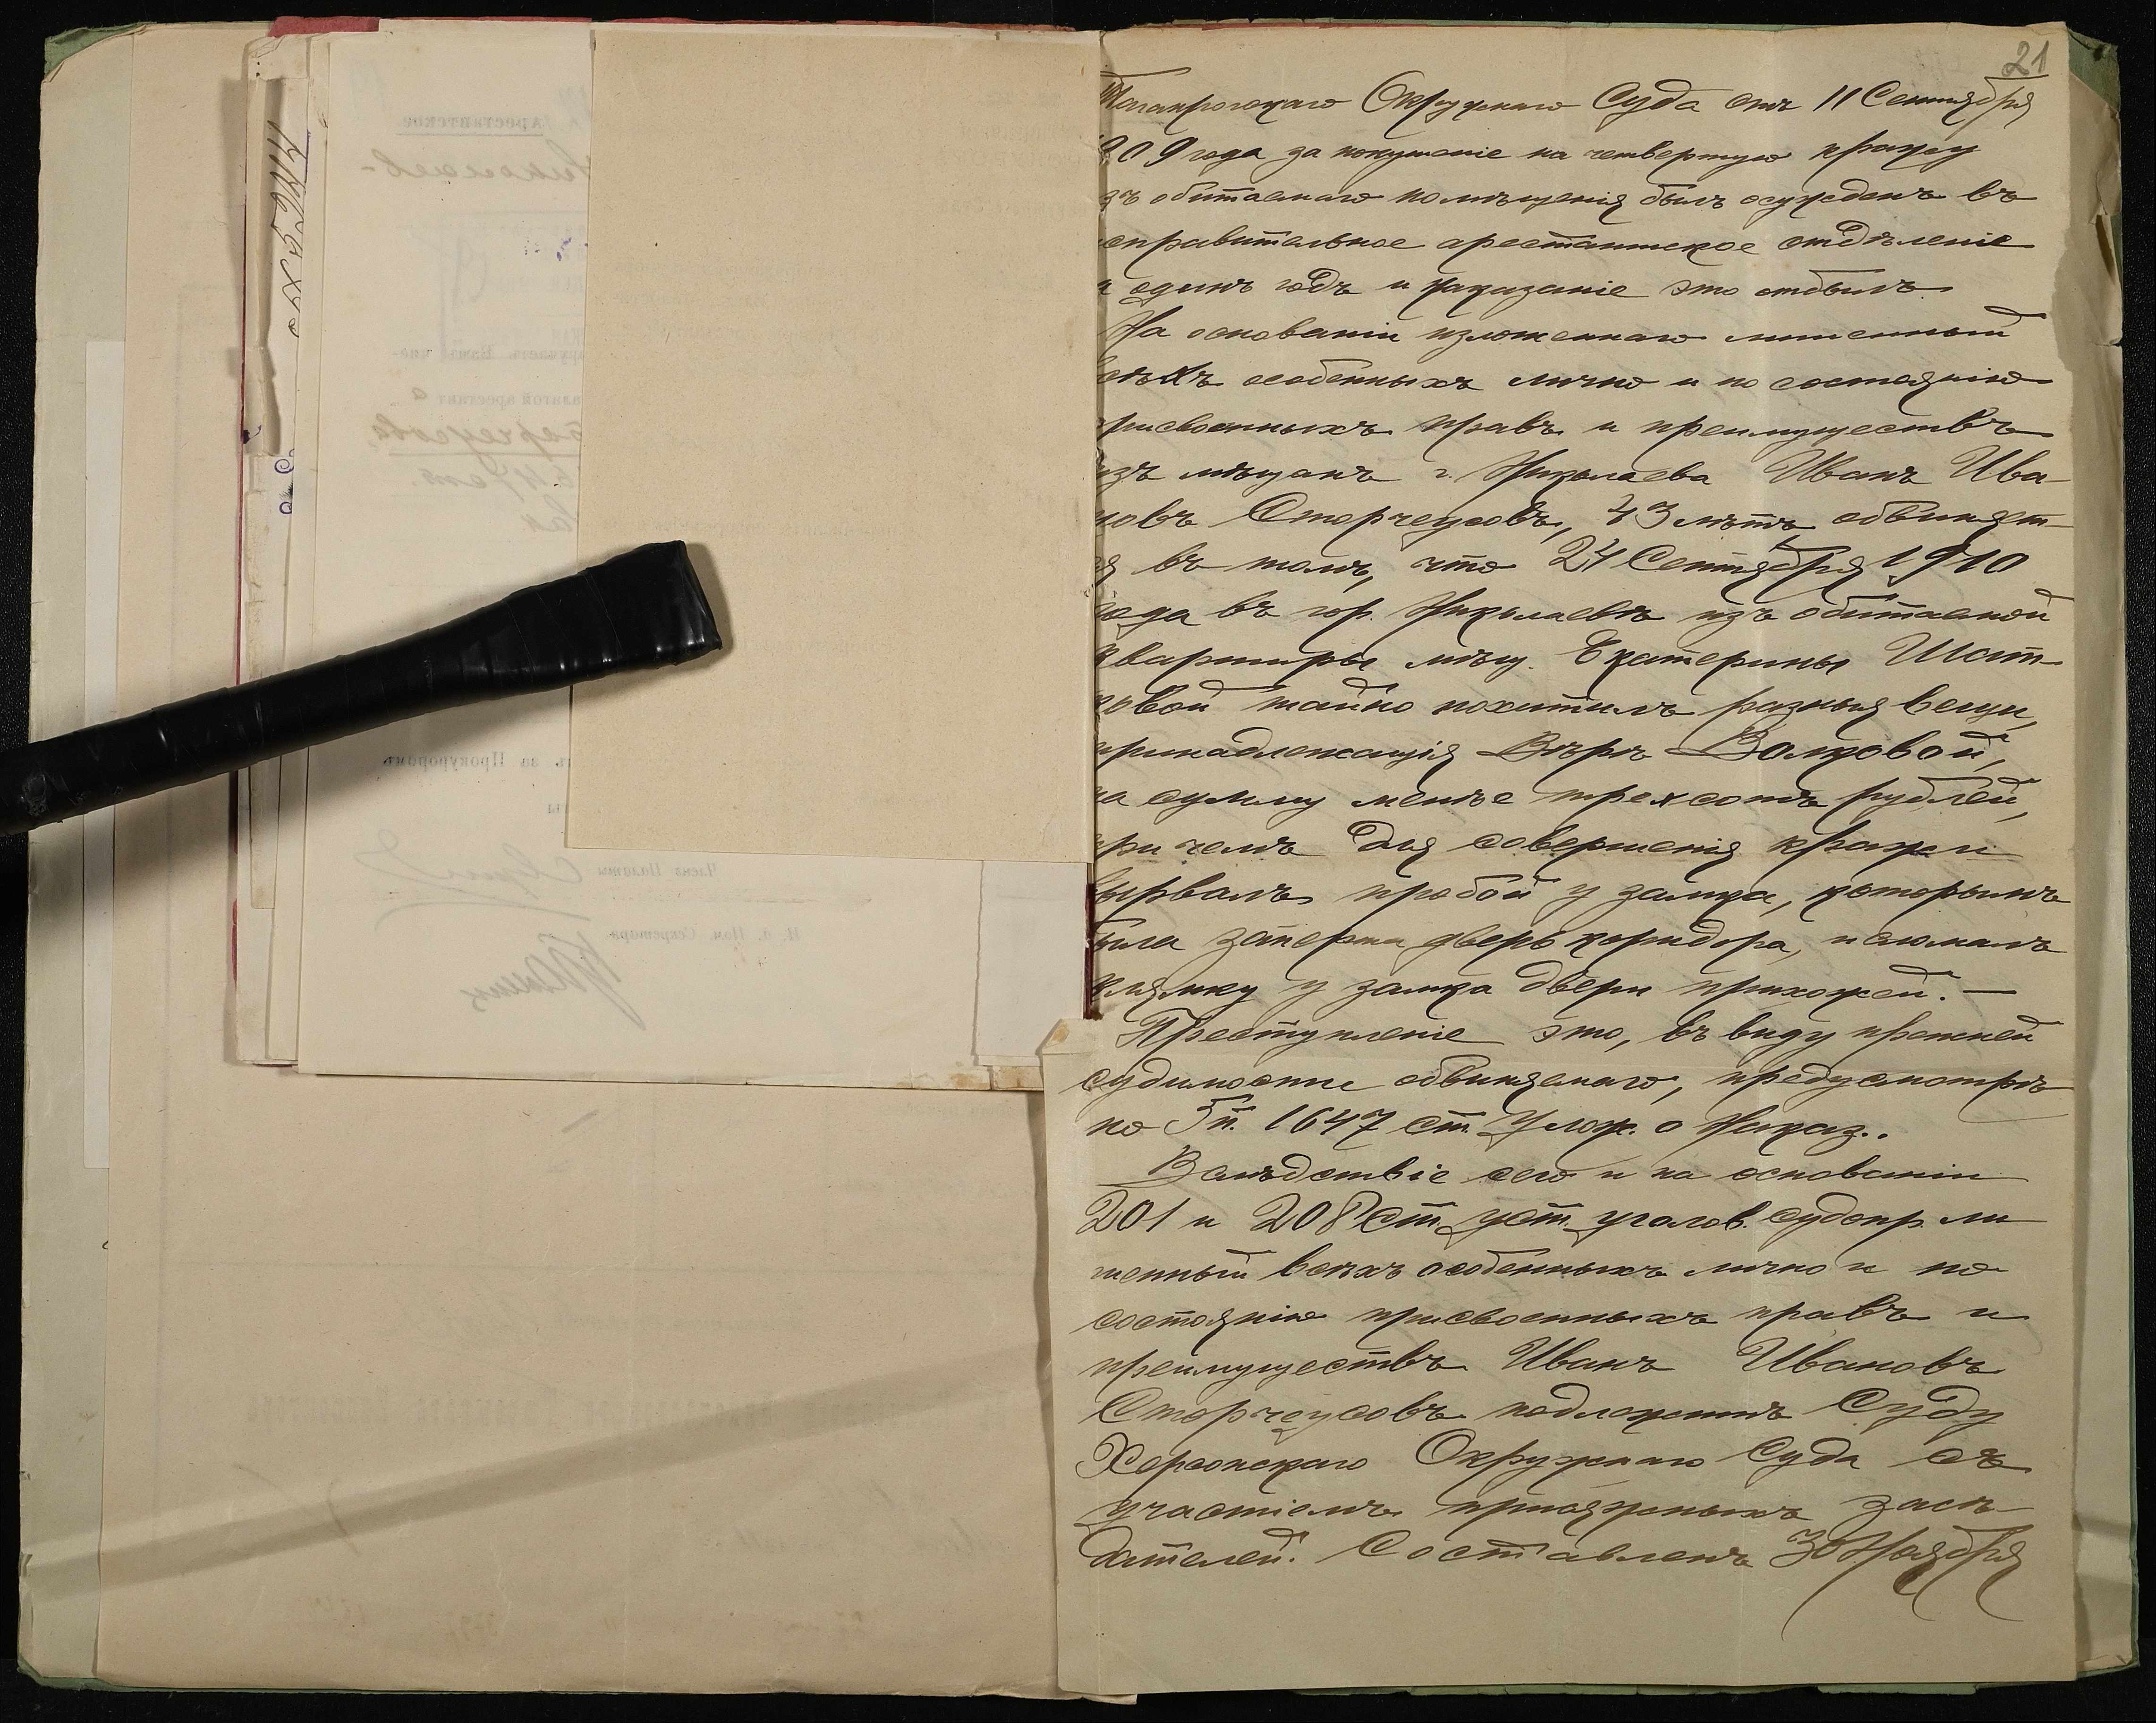 21
Таганрогскаго Окружнаго Суда отъ 11 Сентября
909 года за покушеніе на четвертую кражу
зъ обитаемаго помѣщенія былъ осужденъ въ
справительное арестантское отдѣленіе
а одинъ годъ и наказаніе это отбылъ
На основаніи изложеннаго лишенный
всѣхъ особенныхъ лично и по состоянію
присвоенныхъ правъ и преимуществъ
изъ мѣщанъ г. Николаева Иванъ Ива-
новъ Сторчеусовъ, 43 лѣтъ, обвиняет-
ся въ томъ, что 24 Сентября 1910
года въ гор. Николаевѣ изъ обитаемой
квартиры мѣщ. Екатерины Шат-
ковой тайно похитилъ разныя вещи,
принадлежащія Вѣрѣ Волковой,
на сумму менѣе трехсотъ рублей,
при чемъ для совершенія кражи
вырвалъ пробой у замка, которымъ
была заперта дверь коридора, и сломалъ
клямку у замка двери прихожей. —
Преступленіе это, въ виду прежней
судимости обвиняемаго, предусмотрѣ
но 5 п. 1647 ст. Улож. о Наказ..
Вслѣдствіе сего и на основаніи
201 и 208 ст. уст. уголов. судопр. ли
шенный всѣхъ особенныхъ лично и по
состоянію присвоенныхъ правъ и
преимуществъ Иванъ Ивановъ
Сторчеусовъ подлежитъ Суду
Херсонскаго Окружнаго Суда съ
участіемъ присяжныхъ засѣ
дателей. Составленъ 30 Ноября